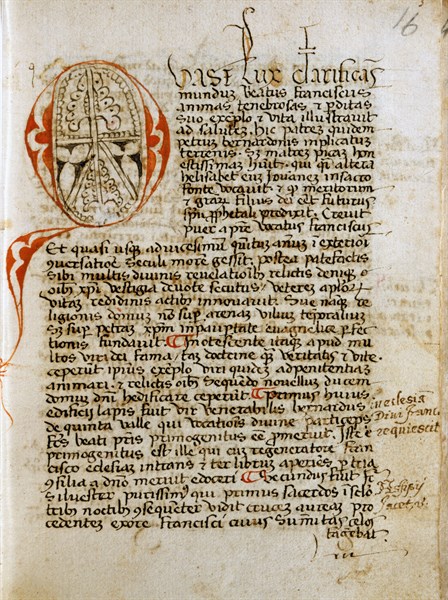 16
Quasi lux clarificās
mundum beatus Franciscus
animas tenebrosas & pditas
suo exēplo & vita illustravit
ad salutez. hic patrez quidem
petrum bernardonis implicatum
terrenis. Sz matrez picaz hon
estissimaz huit. qui qsi altera
helisabet euz Jouanez in sacro
fonte vocavit & qz meritorum
& grāz filius dei eēt futurus
spū pphetali predixit. Crevit
puer a prē vocatus franciscus
Et quasi usqz ad vicesimuz quītuz annū ī exteriori
9uersatiōe seculi more gessit. postea patefactis
sibi multis divinis revelatiōibz relictis deniqz oī
oibz xpī vestigia devote secutus & veterez aplōz
vitaz redidinis actibz innovavit. Sue naqz re
ligionis domuz nō supr arenaz viliuz temporaliuz
sz supr petraz xpm in paupitate evāgelice pfec
tionis fundavit. Innotescente itaqz apud mu
ltos viri dei fama, taz doctrine qz veritatis & vite
ceperunt ipius exēplo viri quidez ad penitentiaz
animari. & relictis oibz sequēdo novelluz ducem
domuz dnī hedificare ceperunt. Primus huius
edificii lapis fuit vir venerabilis bernardus
de quinta valle qui vocatiōis divine particeps
Fēs beati pris primogenitus eē promeruit. Iste ē
primogenitus est ille qui cuz regeneratore Fran
cisco ecclesiaz intrans & ter libruz aperiēs, p tria
9silia a dnō meruit edoceri. Secundus fuit fr
silvester purissimus qui primus sacerdos ī selo
tribz noctibz 9sequeter vidit crucez aureaz pro
cedentez ex ore Francisci cuius sumitas celos
tāgebat
in ecclesia
Divi Franci
requiescit
sacerdos